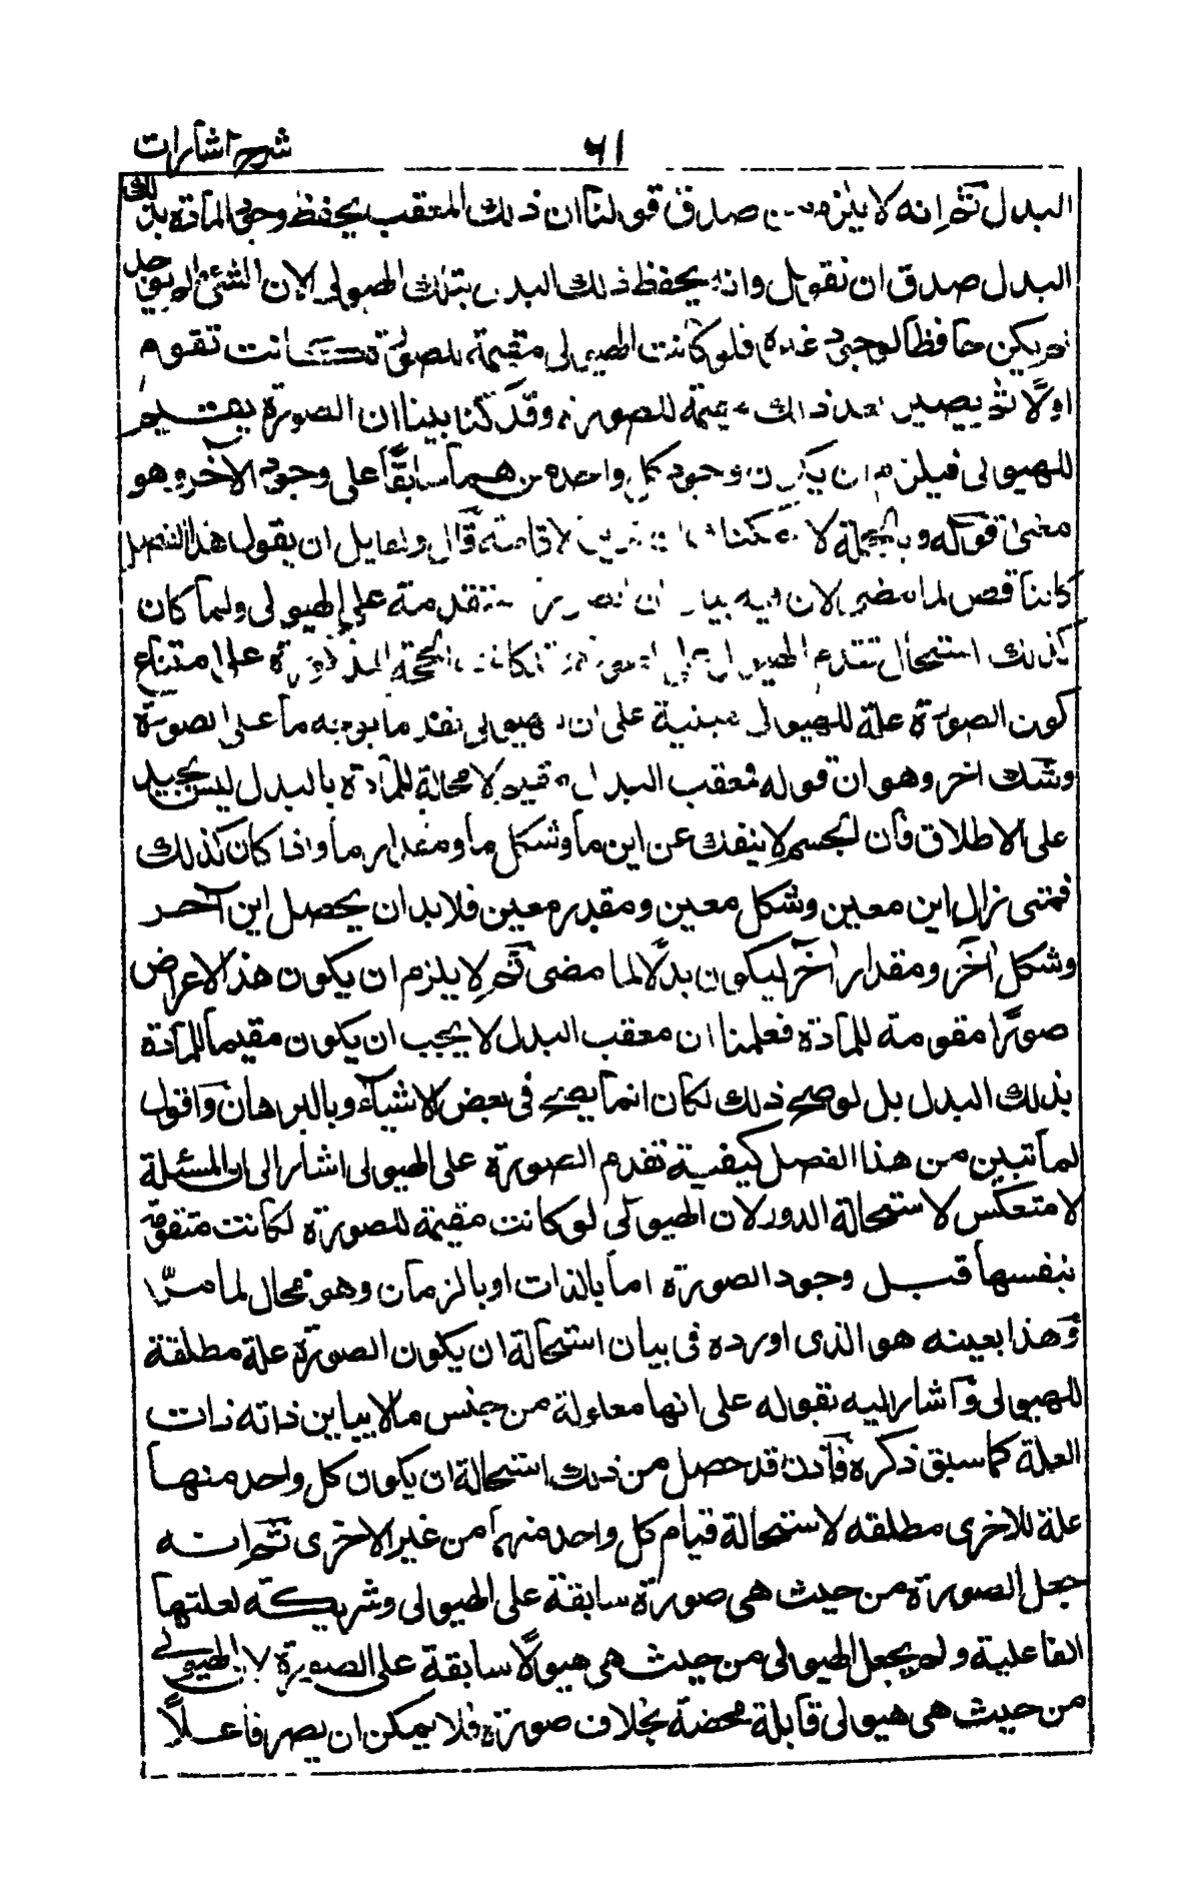 شرح اشارات
٦١
البدل ثم انه لا يلزم من صدق قولنا ان ذلك المتعقب يحفظ وجود المادة بذلك
البدل صدق ان نقول وانه يحفظ ذلك البدل بتلك الهيولى لان الشئ ما لم يوجد
لم يكن حافظا لوجود غيره فلو كانت الهيولى مقيمة للصورة كانت تقوم
اولا ثم يصير بعد ذلك مقيمة للصورة وقد كنا بينا ان الصورة يقيم
للهيولى فيلزم ان يكون وجود كل واحدة منهما سابقا على وجود الآخر وهو
معنى قوله وبالجملة لا يمكننا ان الاقامة قال ولقايل ان يقول هذا الفصل
كالمناقض لما مضى لان فيه بيان ان الصورة متقدمة على الهيولى ولما كان
كذلك استحال تقدم الهيولى على الصورة فكانت الحجة المذكورة على امتناع
كون الصورة علة للهيولى مبنية على ان الهيولى تقدما بوجه ما على الصورة
وشك اخر وهو ان قوله معقب البدل مقيم لا محالة للمادة بالبدل ليس بجيد
على الاطلاق فان الجسم لا ينفك عن اين ما وشكل ما ومقدار ما واذا كان كذلك
فمتى زال اين معين وشكل معين ومقدر معين فلا بد ان يحصل اين آخر
وشكل آخر ومقدار آخر ليكون بدلا لما مضى ثم لا يلزم ان يكون هذ الاعراض
صورا مقومة للمادة فعلمنا ان معقب البدل لا يجب ان يكون مقيما للمادة
بذلك البدل بل لو صح ذلك لكان انما يصح فى بعض الاشياء وبالبرهان واقول
لما تبين من هذا الفصل كيفية تقدم الصورة على الهيولى اشار الى ان المسئلة
لا متعكس لاستحالة الدور لان الهيولى لو كانت مقيمة للصورة لكانت متفقمة
بنفسها قبل وجود الصورة اما بالذات او بالزمان وهو محال لما مرّ
وهذا بعينه هو الذى اورده فى بيان استحالة ان يكون الصورة علة مطلقة
للهيولى واشار اليه بقوله على انها معلولة من جنس ما لا يباين ذاته ذات
العلة كما سبق ذكره فاذن قد حصل من ذلك استحالة ان يكون كل واحد منهما
علة للاخرى مطلقه لاستحالة قيام كل واحد منهما من غير الاخرى ثم انه
جعل الصورة من حيث هى صورة سابقة على الهيولى وشريكة لعلتها
الفاعلية ولم يجعل الهيولى من حيث هى هيولا سابقة على الصورة لان الهيولى
من حيث هى هيولى قابلة محضة بخلاف صورة فلا يمكن ان يصر فاعلا